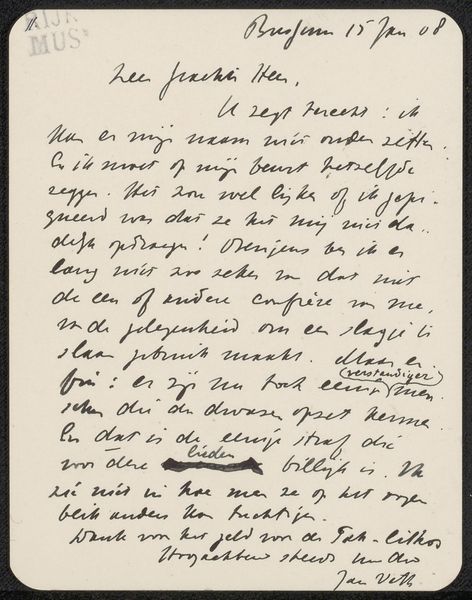 RIJK
MUS
Bussum 15 Jan 08
Zeer geachte Heer,
U zegt terecht: ik
kan er mijn naam niet onder zetten.
En ik moet op mijn beurt hetzelfde
zeggen. Het zou wel lijken of ik gepi-
queerd was dat ze het mij niet da-
delijk opdroegen! Overigens ben ik er
lang niet zoo zeker van dat niet
de een of andere confrère van me,
van de gelegenheid om een slagje te
slaan gebruik maakt. Maar en-
fin: er zijn nu toch eenige (verstandiger) men-
schen die den dwazen opzet kennen.
En dat is de eenige straf die
voor deze lieden billijk is. Ik
zie niet in hoe men ze op het oogen-
blik anders kan tuchtigen.
Dank voor het geld van de Tak-lithos
Hoogachtend steeds uw dw
Jan Veth